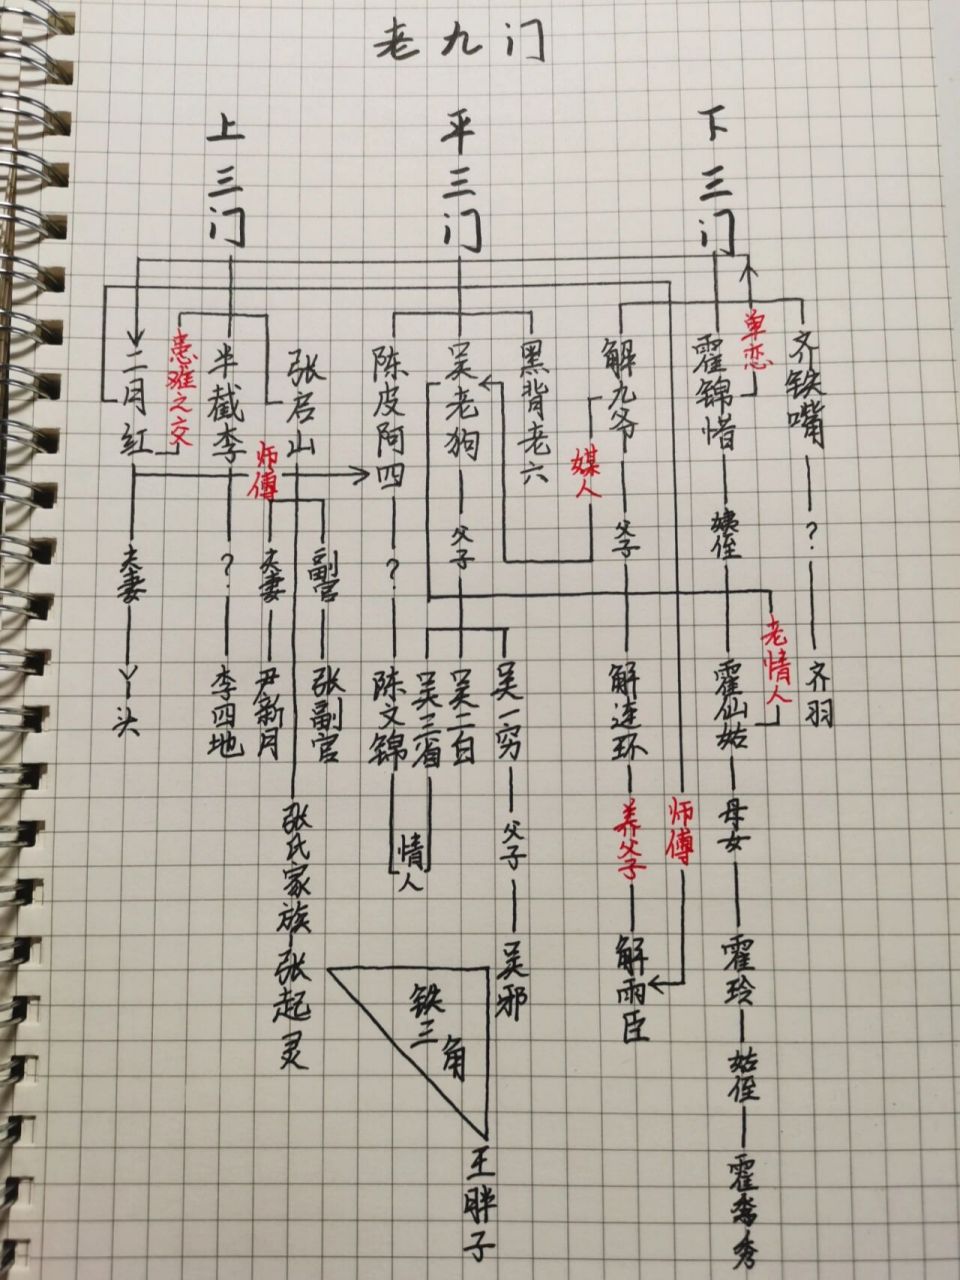 老九门
上三门
平三门
下三门
二月红
患难之交
半截李
张启山
陈皮阿四
吴老狗
黑背老六
解九爷
霍锦惜
单恋
齐铁嘴
师傅
媒人
夫妻
?
夫妻
副官
?
父子
父子
姨侄
?
丫头
李四地
尹新月
张副官
陈文锦
吴三省
吴二白
吴一穷
解连环
霍仙姑
老情人
齐羽
张氏家族
情人
父子
养父子
师傅
母女
张起灵
铁三角
吴邪
解雨臣
霍玲
姑侄
王胖子
霍秀秀